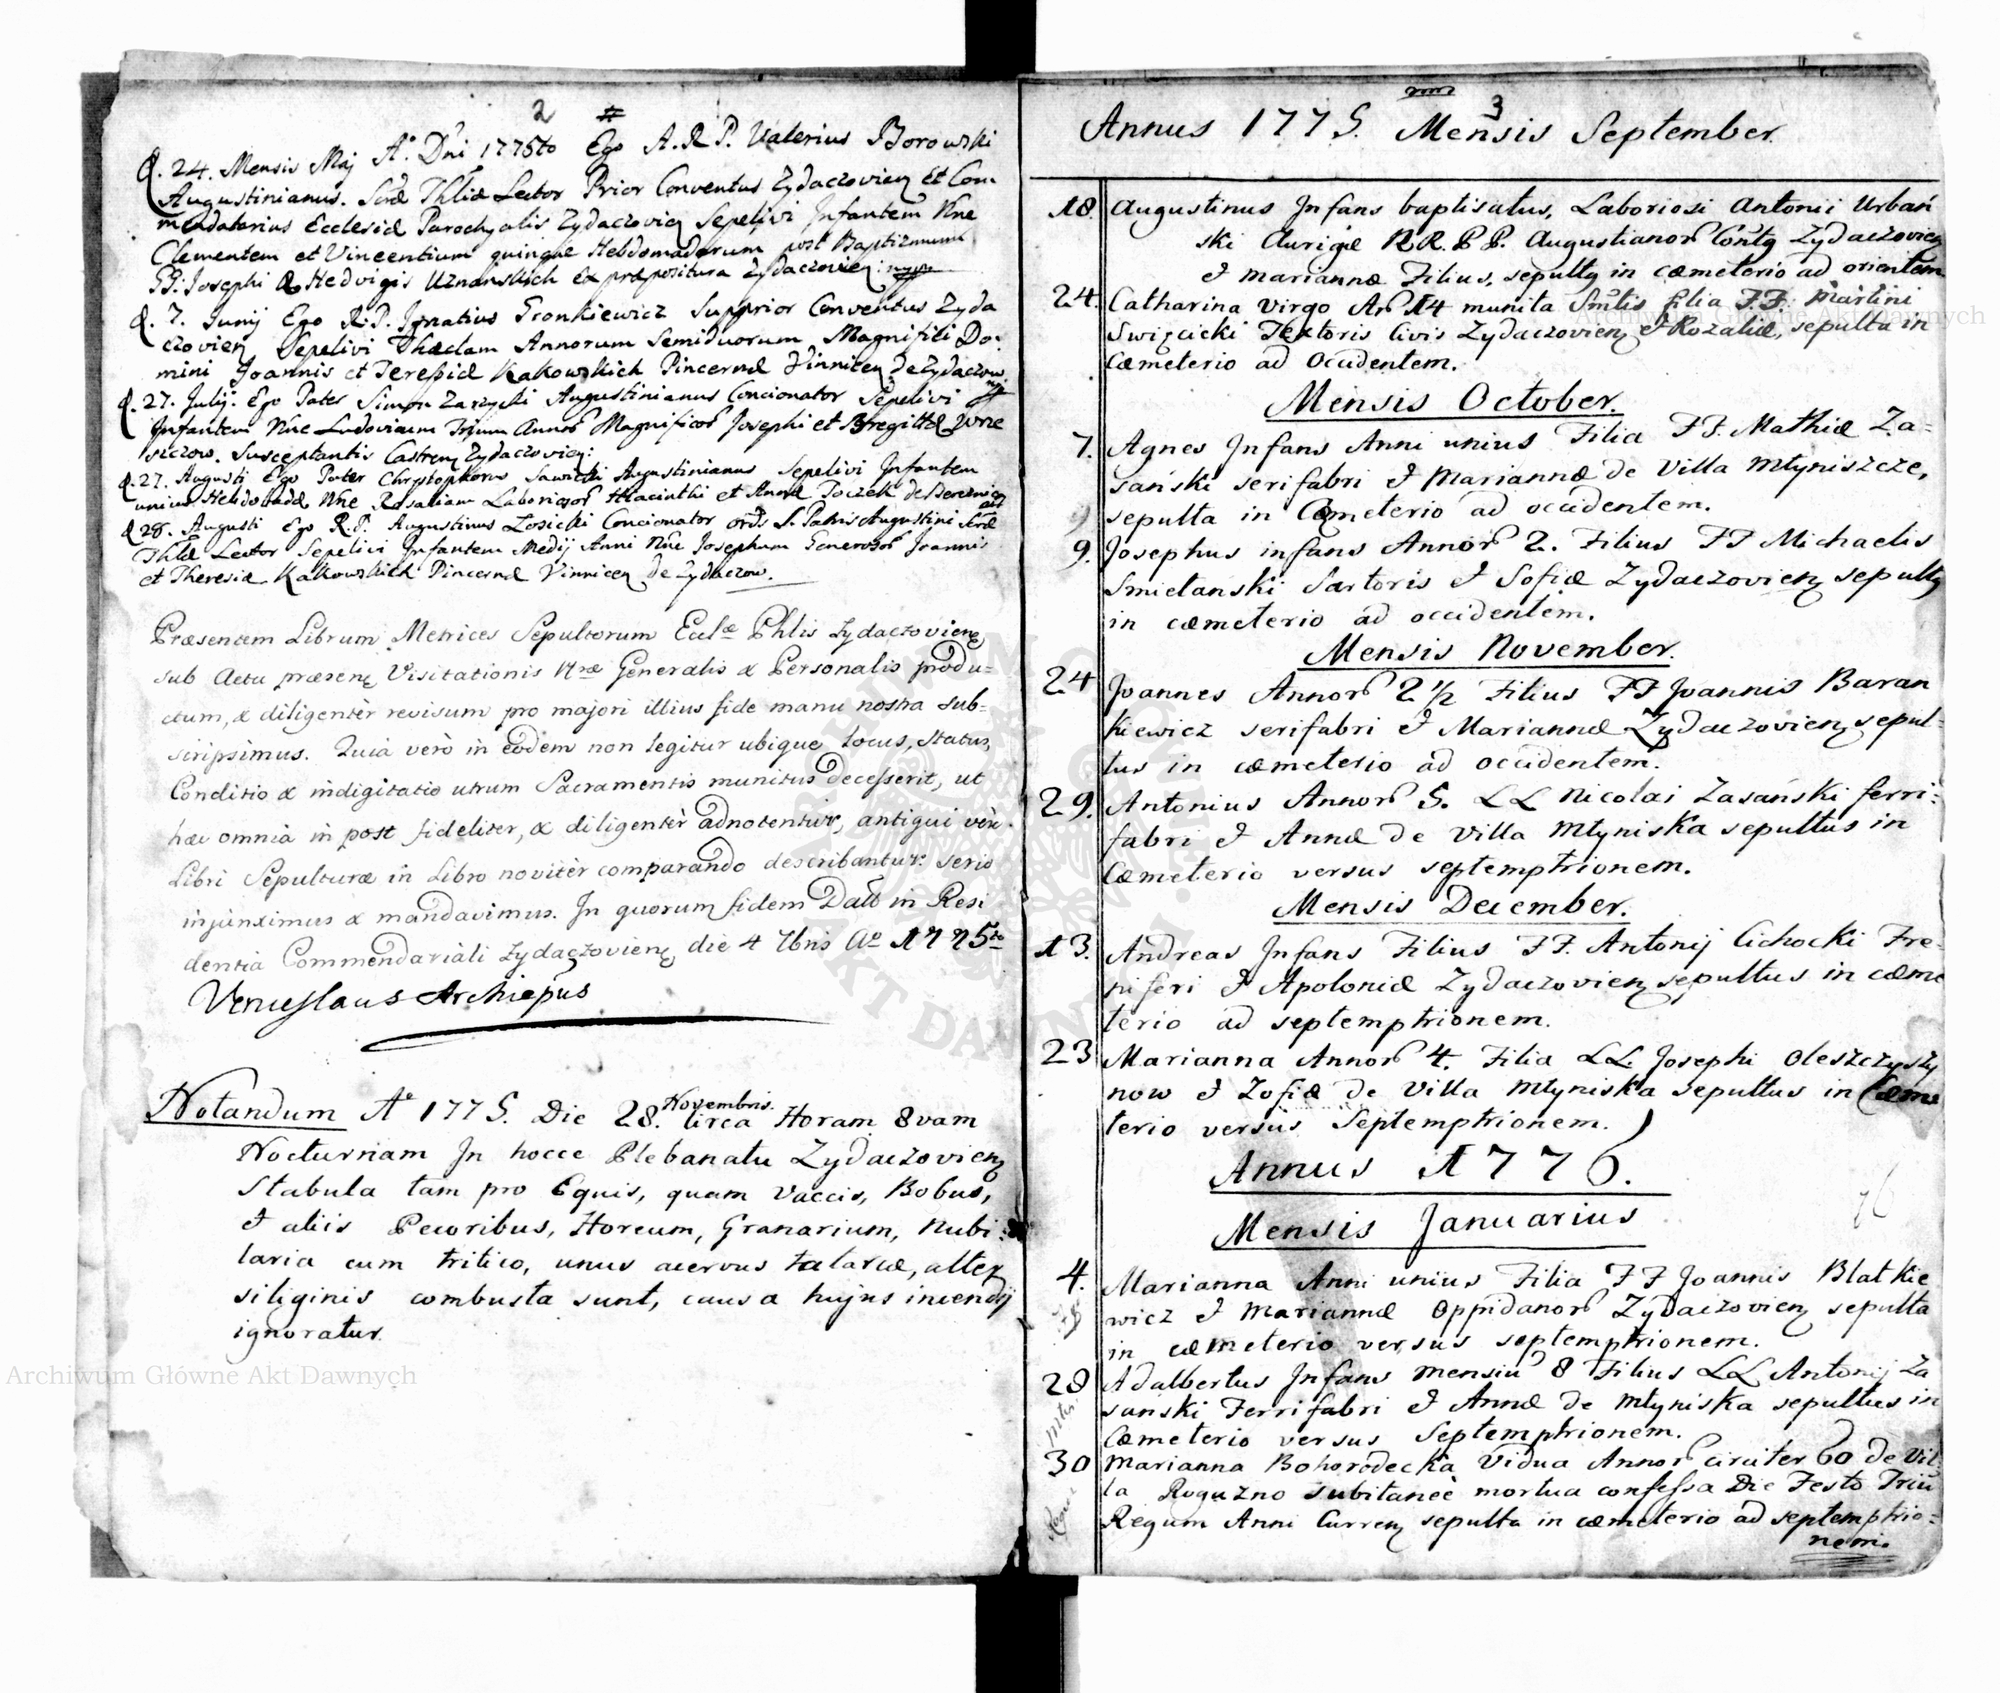 2 #
d. 24. Mensis Maj Aº. Dni 1775to Ego A. R. P. Valerius Borowski
Augustinianus. Scæ Thliæ Lector Prior Conventus Zydaczovien et Com
mendatarius Ecclesiæ Parochyalis Zydaczovien Sepelivi Infantem Nne
Clementem et Vincentium quinque Hebdomadarum post Baptizmum
Josephi & Hedvigis Uznanskich ex præpositura Zydaczovien:
d. 7. Junij Ego R. P. Ignatius Fronkiewicz Supprior Conventus Zyda
czovien Sepelivi Theclam Annorum Semiduorum Magnifili Do:
mini Joannis et Teressiæ Kakowskich Pincernæ Vinnicen de Zydaczow
d. 27. Julij: Ego Pater Simon Zarzycki Augustinianus Concionator Sepelivi
Infantem Nne Ludovicum Trium Annor Magnificor Josephi et Bregittæ
Susceptantis Castren Zydaczovien:
d. 27. Augusti Ego Pater Chrystophorus Sawicki Augustinianus Sepelivi Infantem
unius Hebdomadæ Nne Rosaliam Laboriosor Hiacinthi et Annæ Poczek de
d 28. Augusti Ego R. P. Augustinus Losicki Concionator ords S. Patris Augustini Scræ
Thlæ Lector Sepelivi Infantem Medij Anni Nne Josephum Generosor Joannis
et Theresiæ Kakowskich Pincernæ Vinnicen de Zydaczow.
Præsentem Librum Metrices Sepultorum Eclæ Phlis Zydaczovien
sub Actu præsen Visitationis Nræ Generalis & Personalis produ=
ctum, & diligentèr revisum pro majori illius fide manu nostra sub=
scripsimus. Quia verò in eodem non legitur ubique locus, status,
Conditio & indigitatio utrum Sacramentis munitus decesserit, ut
hæc omnia in post fideliter, & diligentèr adnotentur, antiqui verò
Libri Sepulturæ in Libro novitèr comparando describantur: serio
injunximus & mandavimus. In quorum fidem Datt in Resi
dentia Commendariali Zydaczovien die 4 7bris Aº 1775to
Venceslaus Archiepus
Notandum Aº 1775. Die 28. Novembris. circa Horam 8vam
Nocturnam In hocce Plebanatu Zydaczovien
Stabula tam pro Equis, quam Vaccis, Bobus,
et aliis Pecoribus, Horeum, Granarium, Nubi:
laria cum tritico, unus acervus tatarcæ, alter
siliginis combusta sunt, causa hujus incendij
ignoratur.
3
Annus 1775. Mensis September.
18. Augustinus Infans baptisatus, Laboriosi Antonii Urbań
ski Aurigæ R R. P P. Augustianor Contg Zydaczovien
et Mariannæ Filius, sepultg in cæmeterio ad orientem
24. Catharina Virgo An 14 munita Smtis filia F. F. Martini
Swięcicki Textoris Civis Zydaczovien et Rozaliæ, sepulta in
Cæmeterio ad Occidentem.
Mensis October.
7. Agnes Infans Anni unius Filia F F. Mathiæ Za=
sański serifabri et Mariannæ de Villa Młyniszcze,
sepulta in Cæmeterio ad occidentem.
9. Josephus infans Annor 2. Filius F F Michaelis
Smietanski Sartoris et Sofiæ Zydaczovien sepultg
in cæmeterio ad occidentem.
Mensis November.
24 Joannes Annor 2 1/2 Filius F F Joannis Baran
kiewicz serifabri et Mariannæ Zydaczovien sepul=
tus in cæmeterio ad occidentem.
29. Antonius Annor 5. L L Nicolai Zasański ferri=
fabri et Annæ de Villa Młyniska sepultus in
Cæmeterio versus septemptrionem.
Mensis December.
13. Andreas Infans Filius F F. Antonij Cichocki Fre=
niferi et Apoloniæ Zydaczovien sepultus in cæme
terio ad septemptrionem.
23 Marianna Annor 4. Filia L L. Josephi Oleszczyszy
now et Zofiæ de Villa Młyniska sepultus in Cæme
terio versus Septemptrionem.
Annus 1776.
76
Mensis Januarius
4. Marianna Anni unius Filia F F Joannis Blatkie
wicz et Mariannæ Oppidanor Zydaczovien sepulta
in cæmeterio versus septemptrionem.
28 Adalbertus Infans mensiu 8 Filius L L Antonij Za
sanski Ferrifabri et Annæ de Młyniska sepultus in
Cæmeterio versus Septemptrionem.
30 Marianna Bohorodecka Vidua Annor circiter 60 de Vil
la Roguzno subitaneè mortua confessa Die Festo Triu
Regum Anni Curren sepulta in cæmeterio ad septemptrio=
nem.
Archiwum Główne Akt Dawnych
Archiwum Główne Akt Dawnych